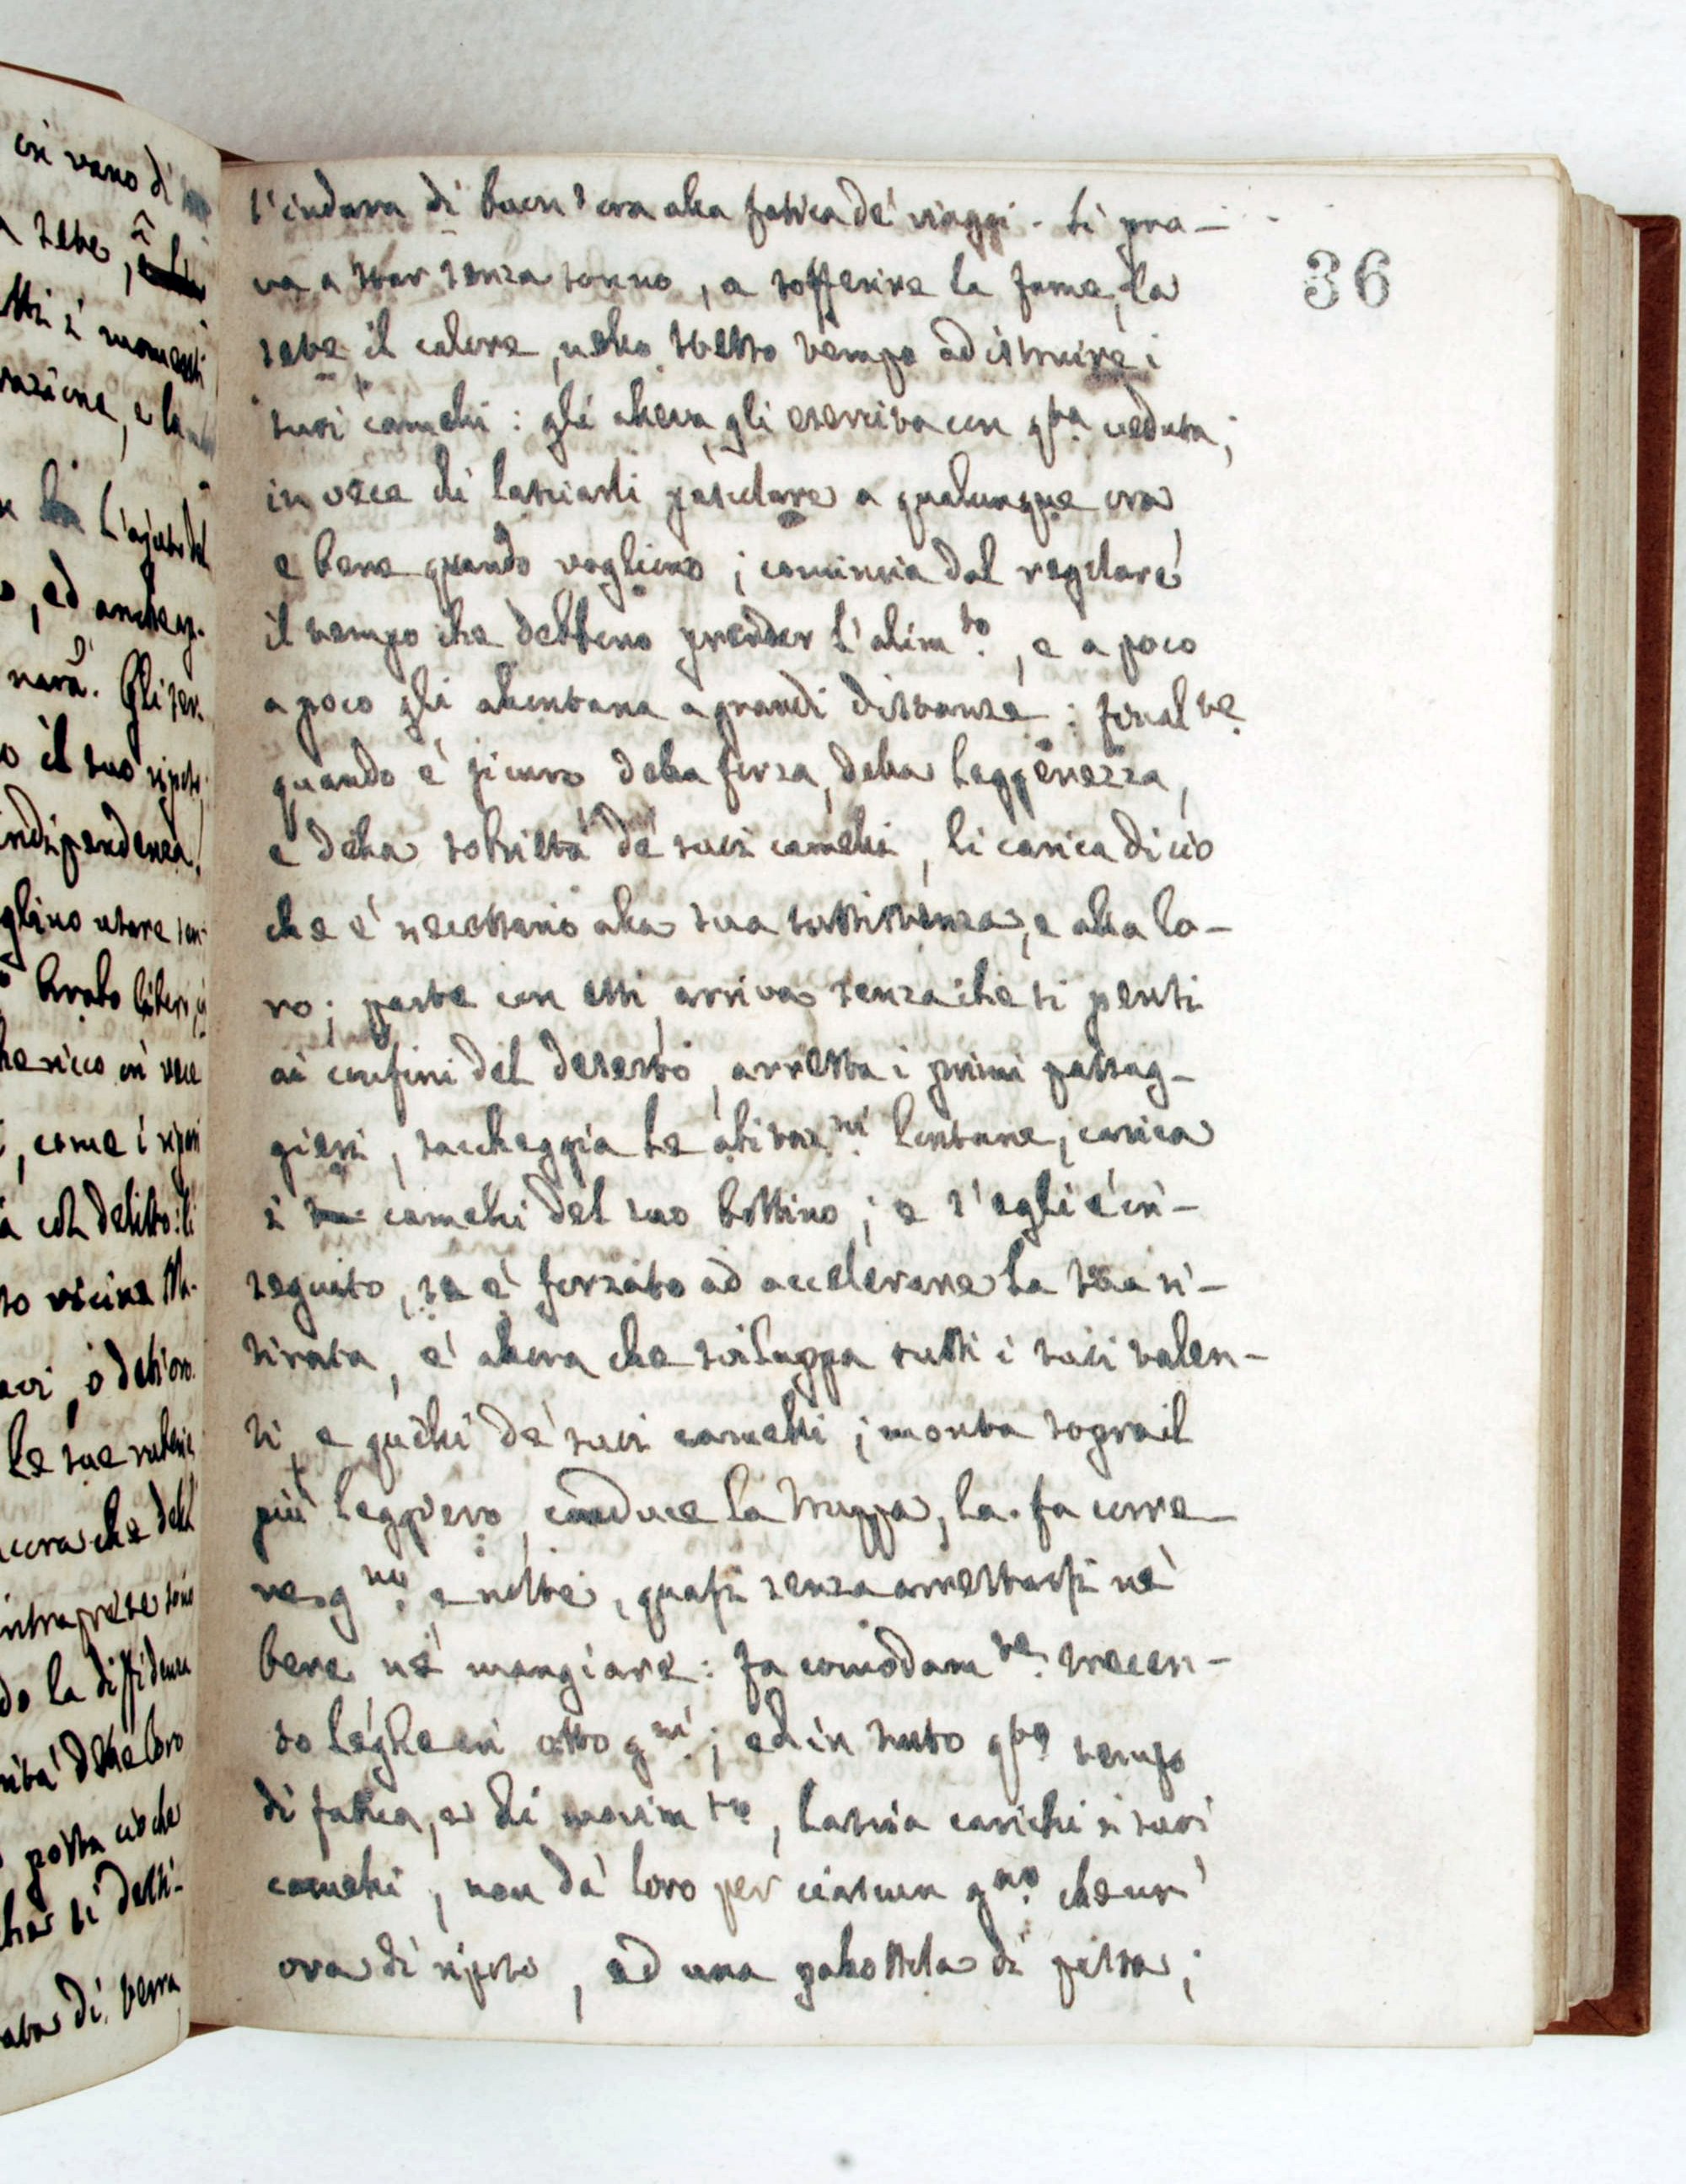 così vano di
sete,
tti i momenti
razione, e la
l'ajuto del
o, ed anche
narã. Gli ser-
o il suo riposo
indipendenza
glino usare
Arabo libero,
he ricco in vece
, come i rigori
a col delitto: li
to vicine
o dell'oro.
le sue ruberie
ancora che dell
intraprese sono
do la diffidenza
rità delle loro
possa ciò che
si desti-
di terra
36
s'indura di buon'ora alla fatica de' viaggi. Si pro-
va a star senza sonno, a sofferire la fame, la
sete il calore, nello stesso tempo ad istruire i
suoi camelli: gli alleva, gli esercita con qsta veduta;
in vece di lasciarli pascolare a qualunque ora
e bere quando vogliono; comincia dal regolare
il tempo che debbono prender l'alimto, e a poco
a poco gli allontana a grandi distanze: finalte
quando è sicuro della forza, della leggerezza,
e della sobrietà de' suoi camelli, li carica di ciò
che è necessario alla sua sussistenza, e alla lo-
ro; parte con essi, arriva senza che si pensi
ai confini del deserto, arresta i primi passag-
gieri, saccheggia le abitazni lontane, carica
i camelli del suo bottino; e s'egli è in-
seguito, se è forzato ad accelerare la sua ri-
tirata, è allora che sviluppa tutti i suoi talen-
ti, e quelli de' suoi camelli; monta sopra il
più leggiero, conduce la truppa, la fa corre-
re gno, e notte, quasi senza arrestarsi nè
bere nè mangiare: fa comodamte trecen-
to leghe in otto gni; ed in tutto qsto tempo
di fatica, e di movimto, lascia carichi i suoi
camelli, non dà loro per ciascun gno che un'
ora di riposo, ed una pallottola di pasta;